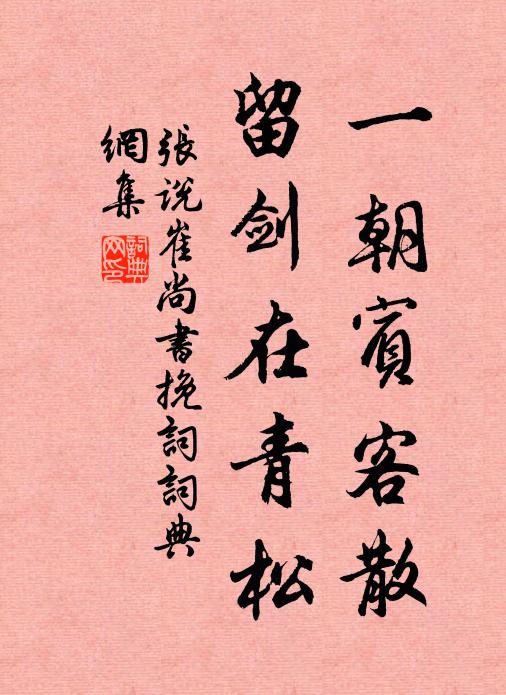 一朝賓客散
留剑在青松
張説崔尚書挽詞詞典
網集
詞典网印